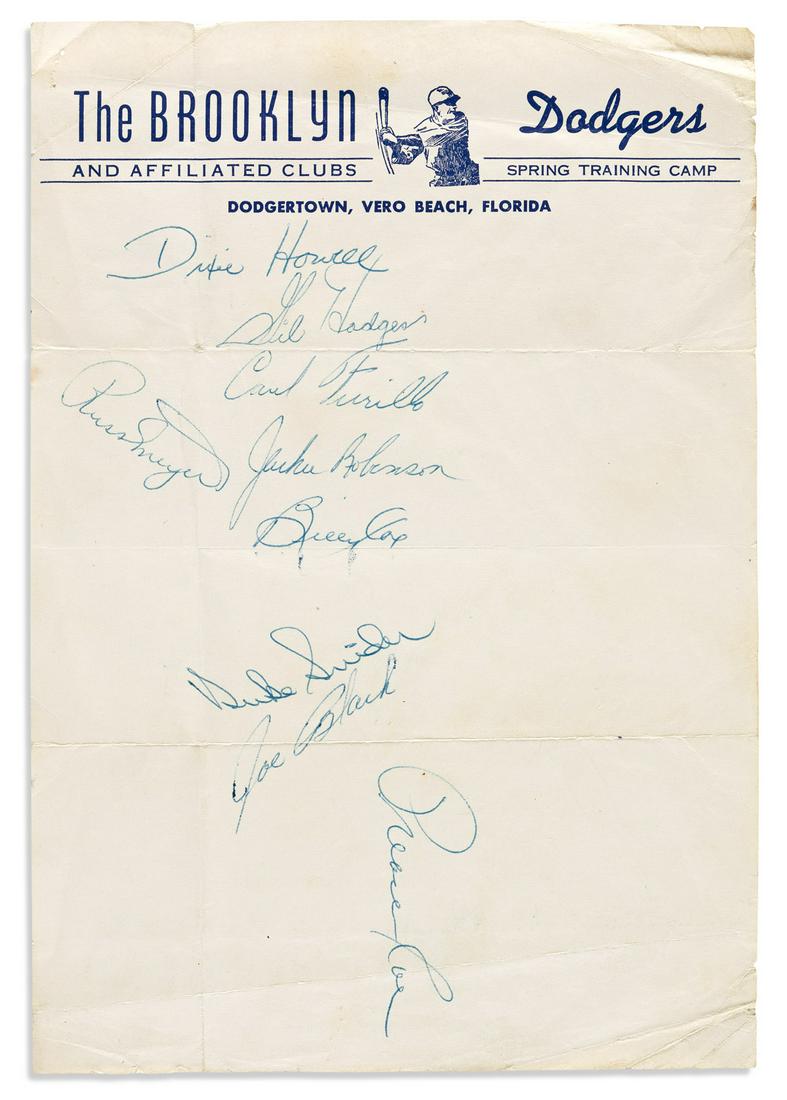 The BROOKLYN Dodgers
AND AFFILIATED CLUBS SPRING TRAINING CAMP
DODGERTOWN, VERO BEACH, FLORIDA
Dixie Howell
Gil Hodges
Carl Furillo
Russ Meyer
Jackie Robinson
Billy Cox
Duke Snider
Joe Black
Preacher Roe